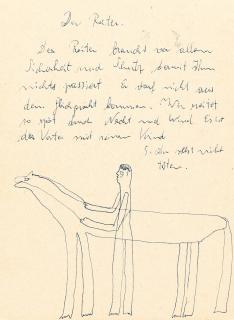 Der Reiter.
Der Reiter braucht vor allem
Sicherheit und Schutz damit ihm
nichts passiert. Er darf nicht aus
dem kommen. Wer reitet
so spät durch Nacht und Wind Es ist
der Vater mit seinem Kind
nicht
töten.